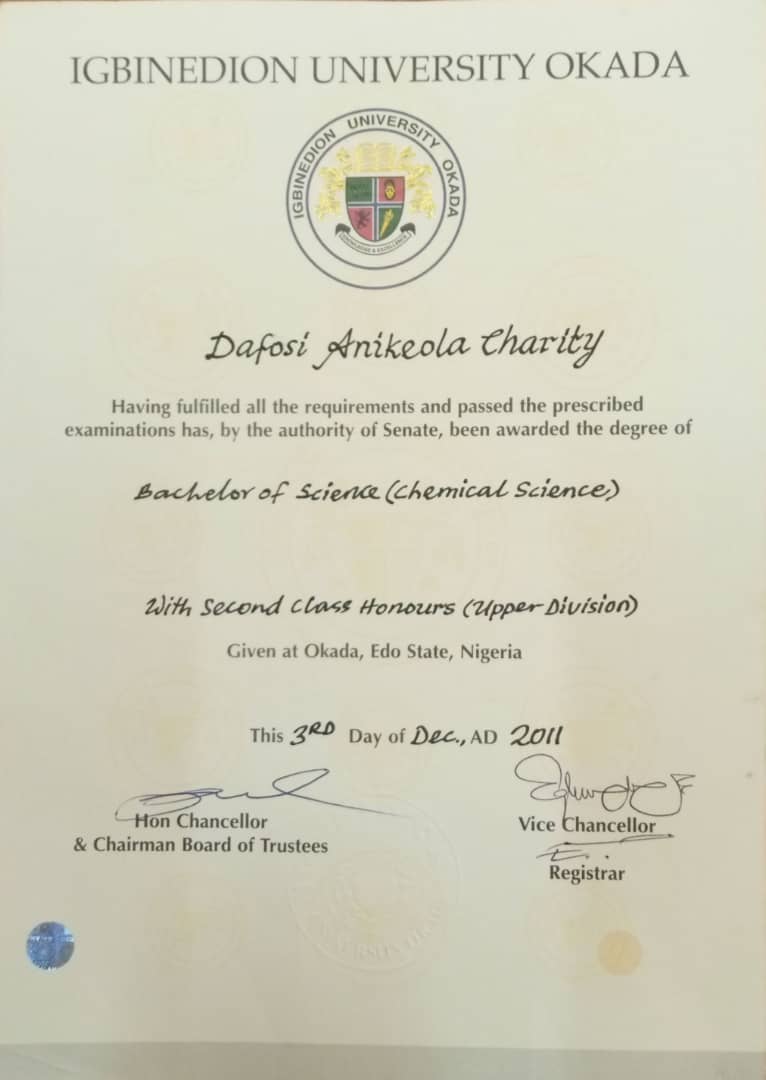 IGBINEDION UNIVERSITY OKADA
IGBINEDION UNIVERSITY OKADA
KNOWLEDGE & EXCELLENCE
Dafosi Anikeola Charity
Having fulfilled all the requirements and passed the prescribed
examinations has, by the authority of Senate, been awarded the degree of
Bachelor of Science (Chemical Science)
With Second Class Honours (Upper Division)
Given at Okada, Edo State, Nigeria
This 3RD Day of Dec., AD 2011
Hon Chancellor
& Chairman Board of Trustees
Vice Chancellor
Registrar